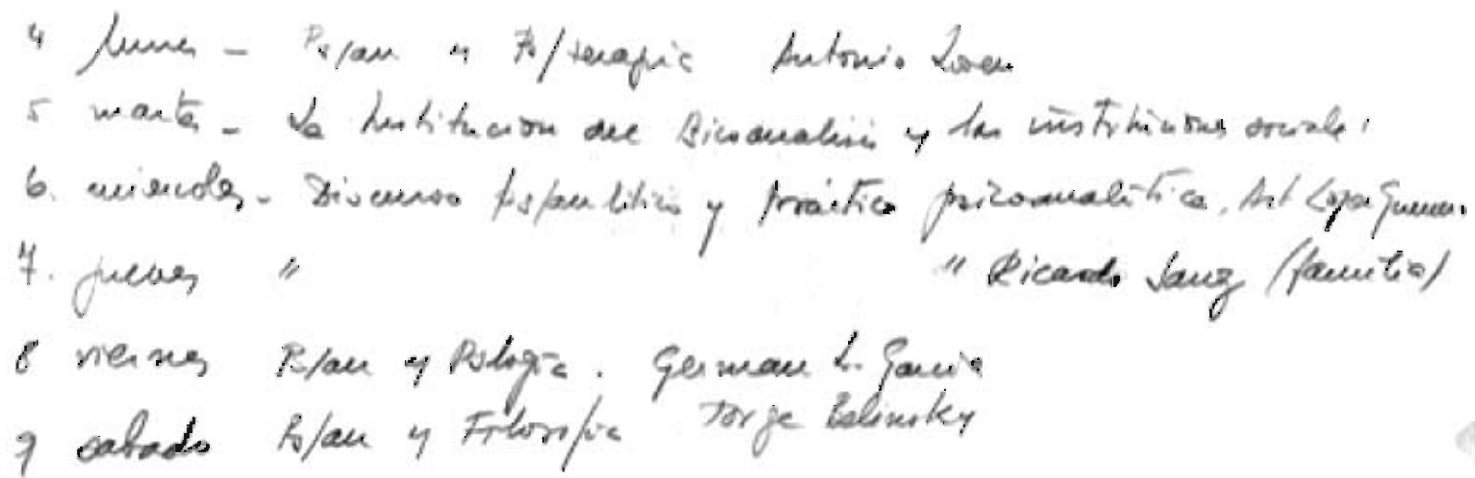 4 lunes - Ps/an y Ps/terapia Antonio
5 martes - La Institucion del Sicoanalisis y las instituciones sociales
6. miercoles - Discurso ps/analitico y práctica psicoanalítica. Lopez
7. jueves " " Ricardo Sanz (familia)
8 viernes Ps/an y Pslogia. German L. Garcia
9 sabado Ps/an y Filosofia Jorge Belinsky